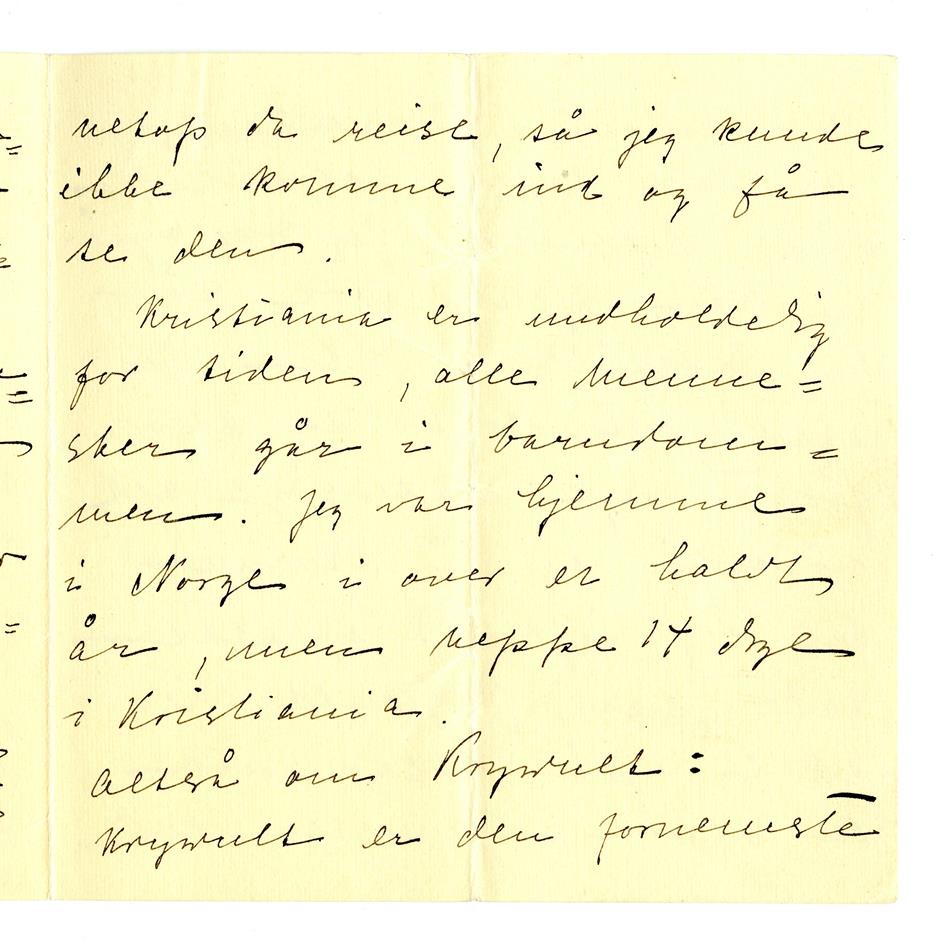 netop da reise, så jeg kunde
ikke komme ind og få
se den.
Kristiania er undholdelig
for tiden, alle menne=
sker går i barndom=
men. Jeg var hjemme
i Norge i over et haldt
år, men neppe 14 dage
i Kristiania.
Altså om Krywult:
Krywult er den fornemste